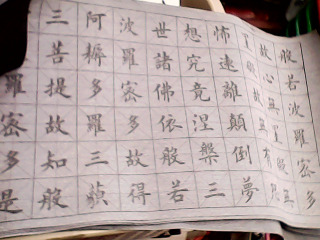 般若波羅密多
故心無
有
怖遠離顛倒夢
想究竟涅槃三
世諸佛依般若
波羅密多故得
阿耨多羅三藐
三菩提故知般
羅密多是